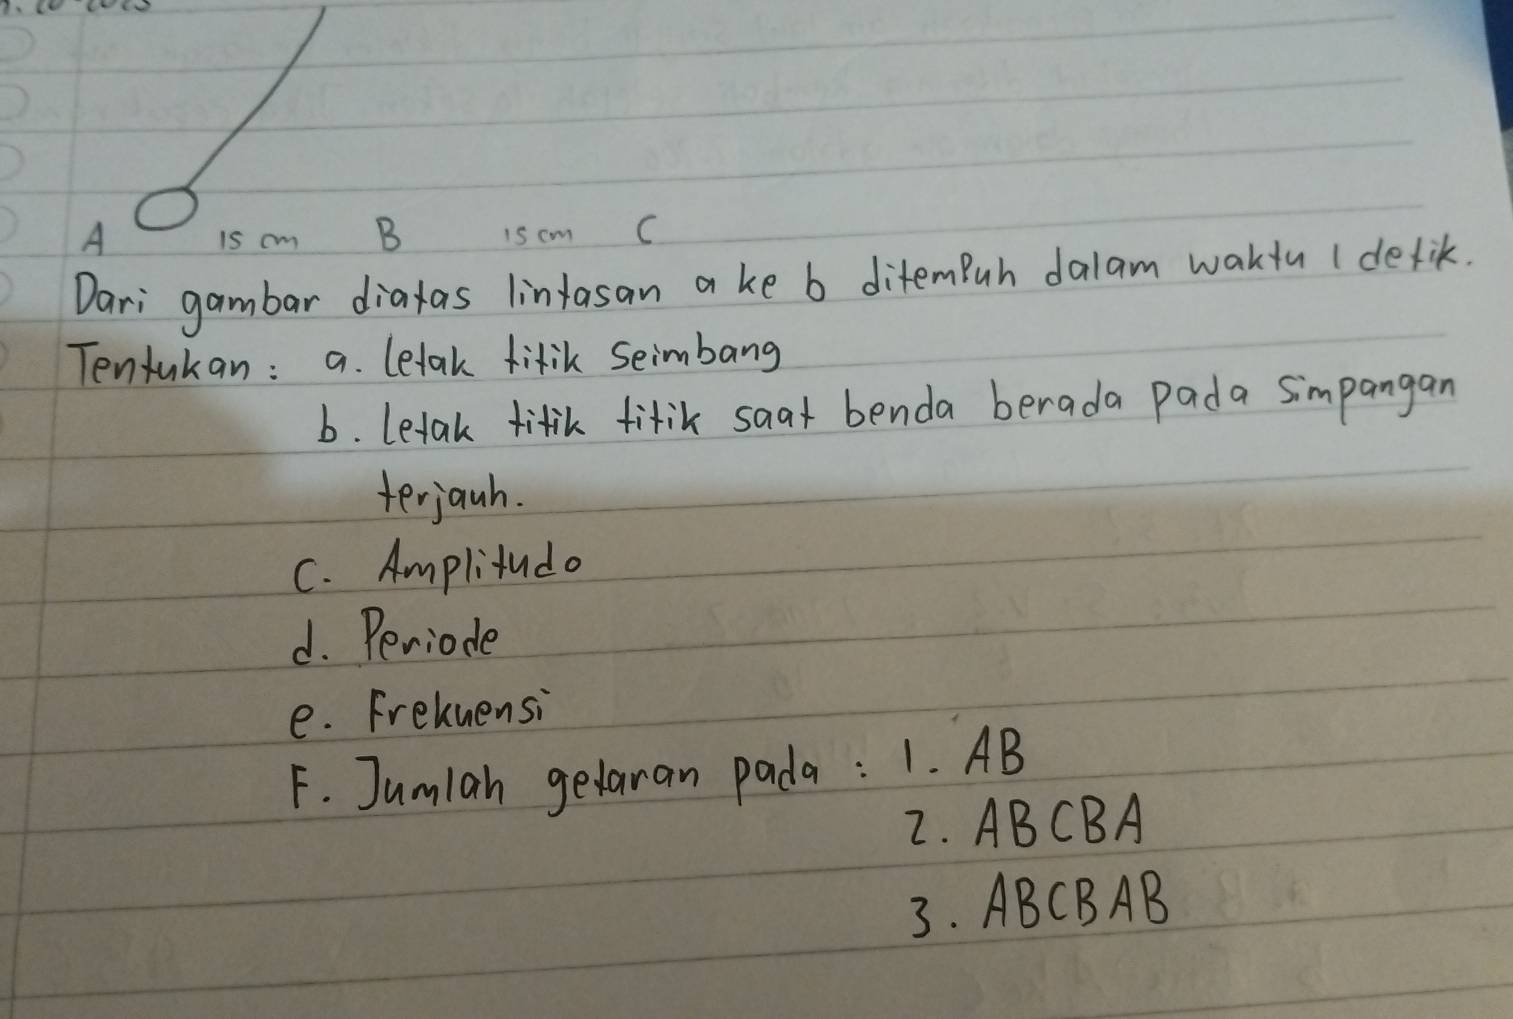 A 15 cm B 15 cm C
Dari gambar diatas lintasan a ke b ditempuh dalam waktu 1 detik.
Tentukan : a. letak titik seimbang
b. letak titik titik saat benda berada pada simpangan
terjauh.
C. Amplitudo
d. Periode
e. Frekuensi
F. Jumlah getaran pada : 1. AB
2. ABCBA
3. ABCBAB